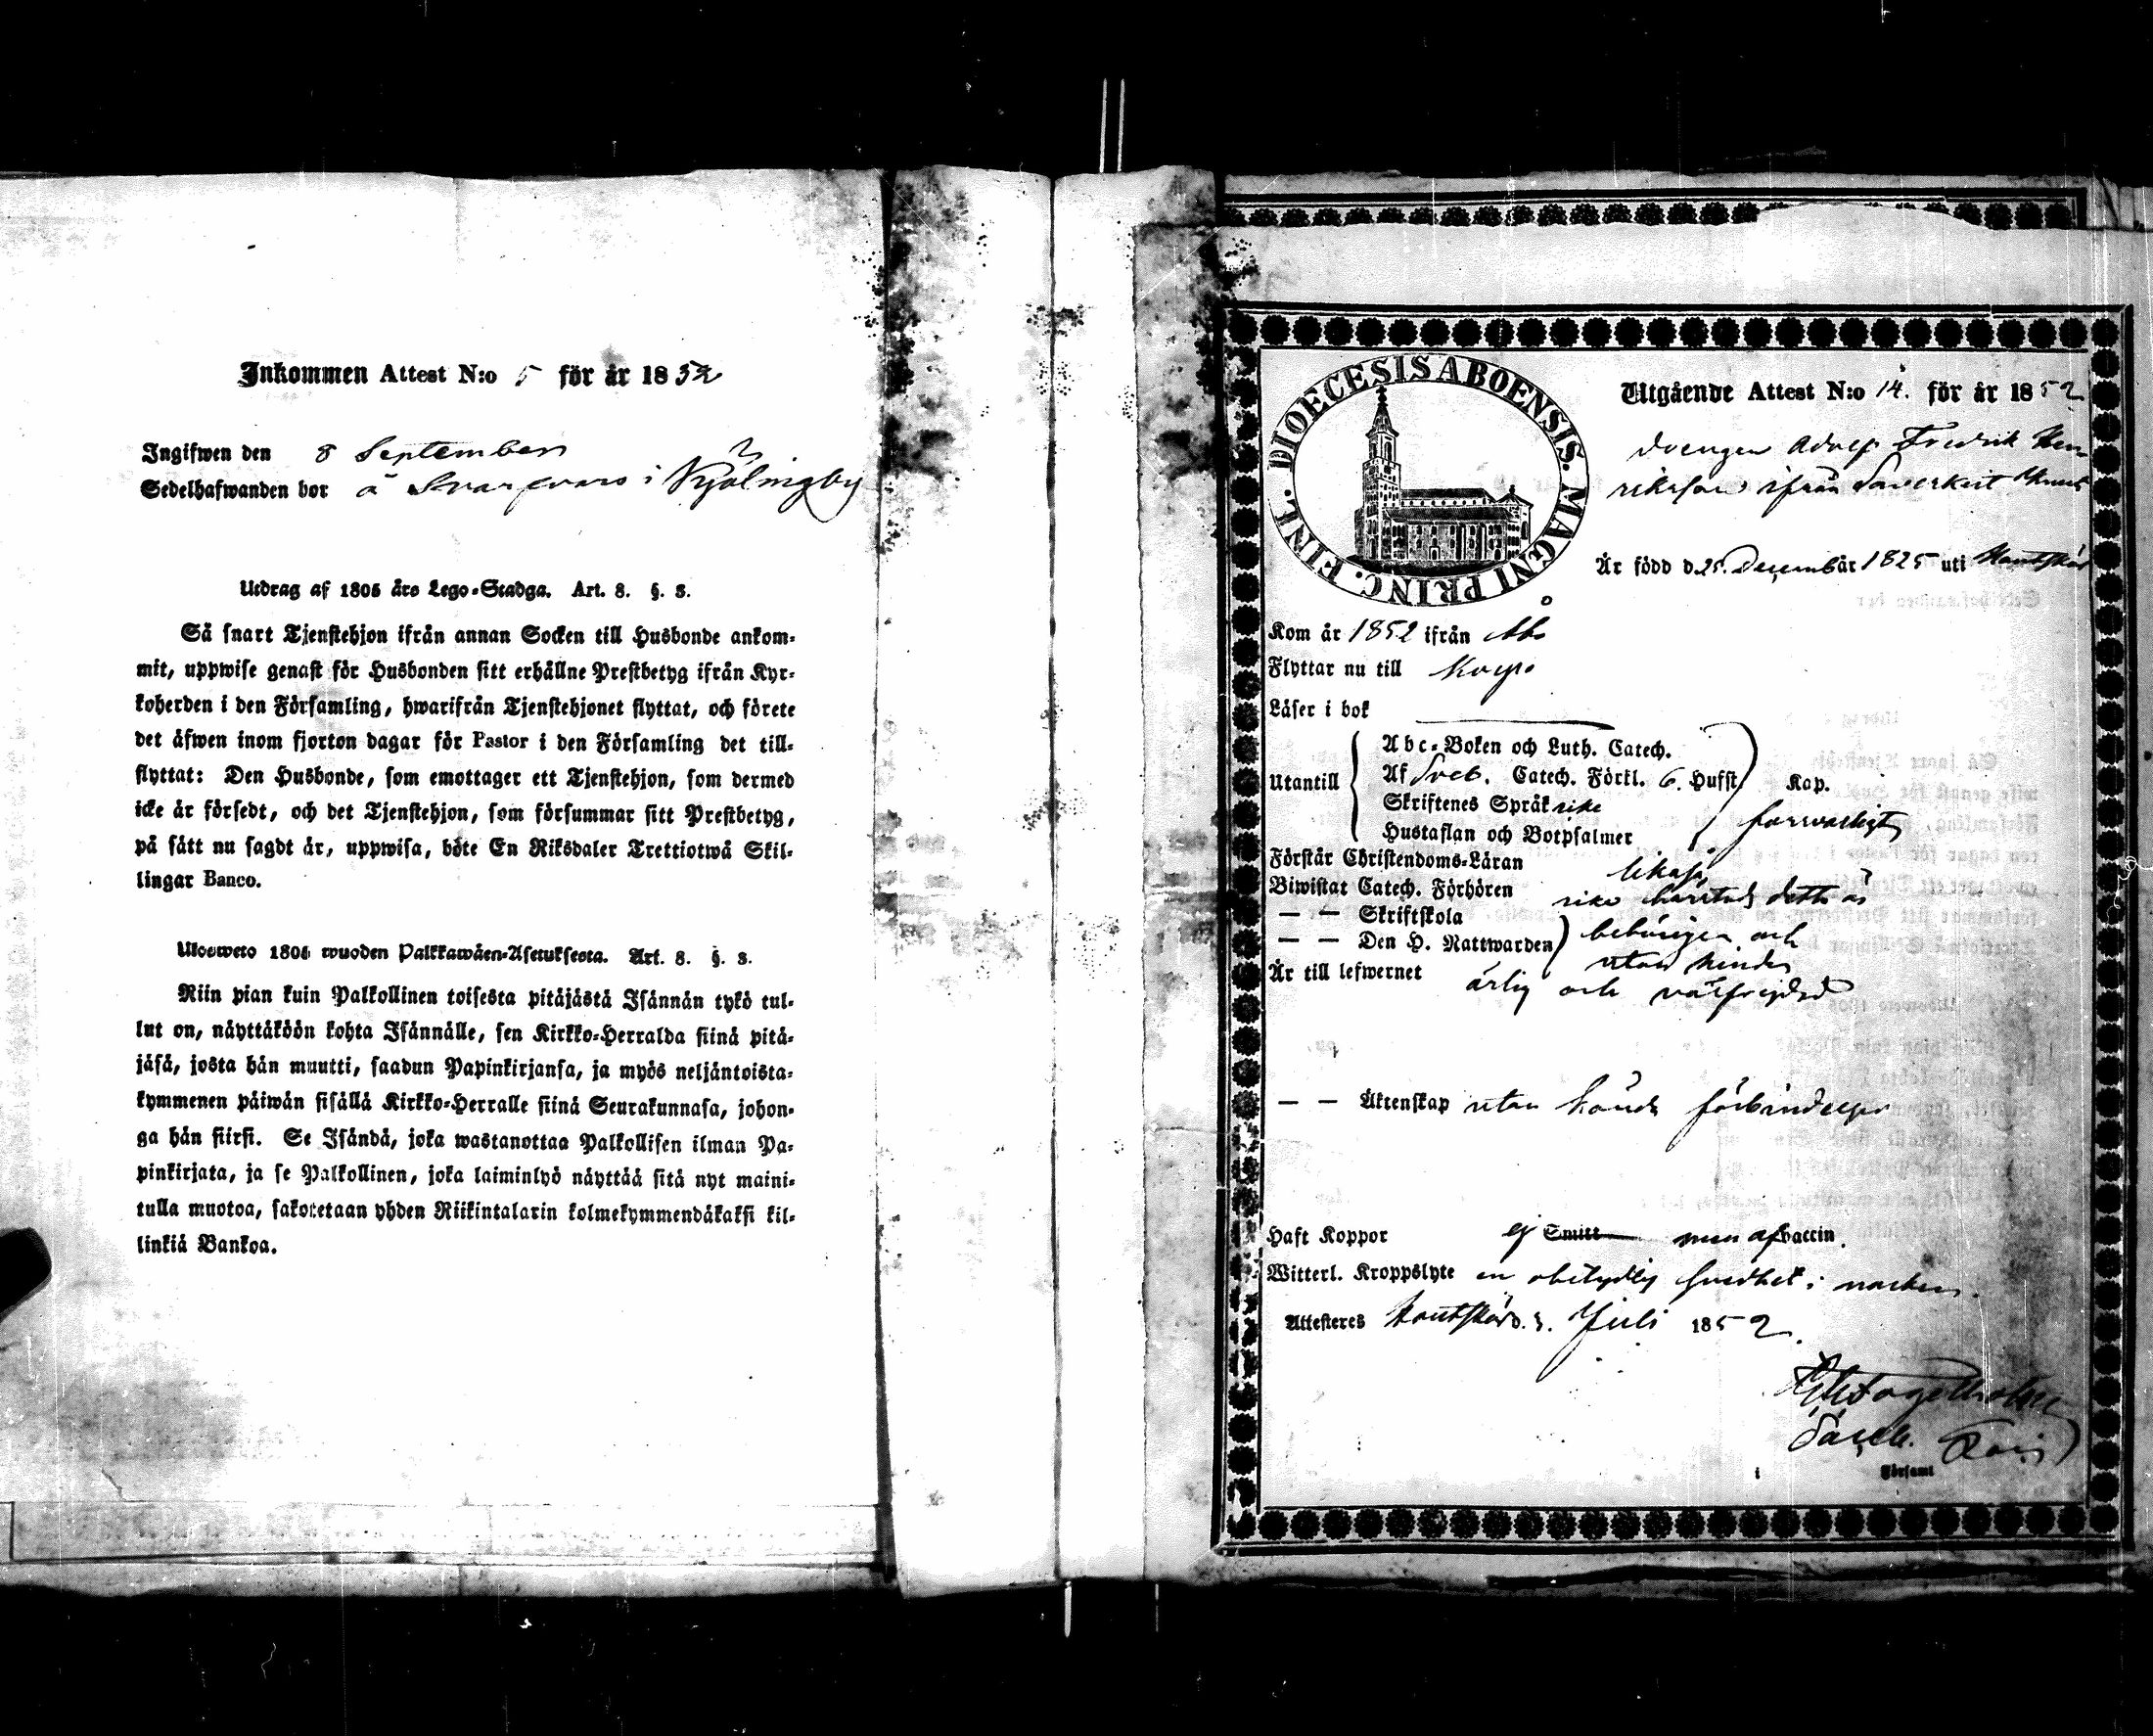 Inkommen Attest N:o 5 för år 1852
Ingifwen den 8 September
Sedelhafwanden bor å Svarfvars i Kjälingby
Utdrag af 1805 års Lego-Stadga. Art. 8. §. 8.
Så snart Tjenstehjon ifrån annan Socken till Husbonde ankom-
mit, uppwise genast för Husbonden sitt erhållne Prestbetyg ifrån Kyr-
koherden i den Församling, hwarifrån Tjenstehjonet flyttat, och förete
det äfwen inom fjorton dagar för Pastor i den Församling det till-
flyttat: Den Husbonde, som emottager ett Tjenstehjon, som dermed
icke är försedt, och det Tjenstehjon, som försummar sitt Prestbetyg,
på sätt nu sagdt är, uppwisa, böte En Riksdaler Trettiotwå Skil-
lingar Banco.
Ulosweto 1805 wuoden Palkkawäen-Asetuksesta. Art. 8. §. 8.
Niin pian kuin Palkollinen toisesta pitäjästä Isännän tykö tul-
lut on, näyttäköön kohta Isännälle, sen Kirkko-Herralda siinä pitä-
jäsä, josta hän muutti, saadun Papinkirjansa, ja myös neljäntoista-
kymmenen päiwän sisällä Kirkko-Herralle siinä Seurakunnasa, johon-
ga hän siirsi. Se Isändä, joka wastanottaa Palkollisen ilman Pa-
pinkirjata, ja se Palkollinen, joka laiminlyö näyttää sitä nyt maini-
tulla muotoa, sakotetaan yhden Riikintalarin kolmekymmendäkaksi kil-
linkiä Bankoa.
DIOECESIS ABOENSIS. MAGNI PRINC. FINL.
Utgående Attest N:o 14. för år 1852
Drengen Adolf Fredrik Hen-
riksson ifrån
Är född d. 25. Decemb år 1825 uti Houtskär
Kom år 1852 ifrån Åbo
Flyttar nu till Korpo
Läser i bok
Abc-Boken och Luth. Catech.
Utantill Af Sveb. Catech. Förkl. 6. Hufst. Kap.
Skriftenes Språk icke
Hustaflan och Botpsalmer försvarligt
Förstår Christendoms-Läran likaså
Biwistat Catech. Förhören icke härstäds detta år
— — Skriftskola
— — Den H. Nattwarden behörigen och
utan hinder
Är till lefwernet ärlig och välfrejdad
— — Äktenskap utan kända förbindelser
Haft Koppor ej Smitt men af vaccin.
Witterl. Kroppslyte en obetydlig snedhet i nacken.
Attesteres Houtskär d. 3. Juli 1852.
i Församl